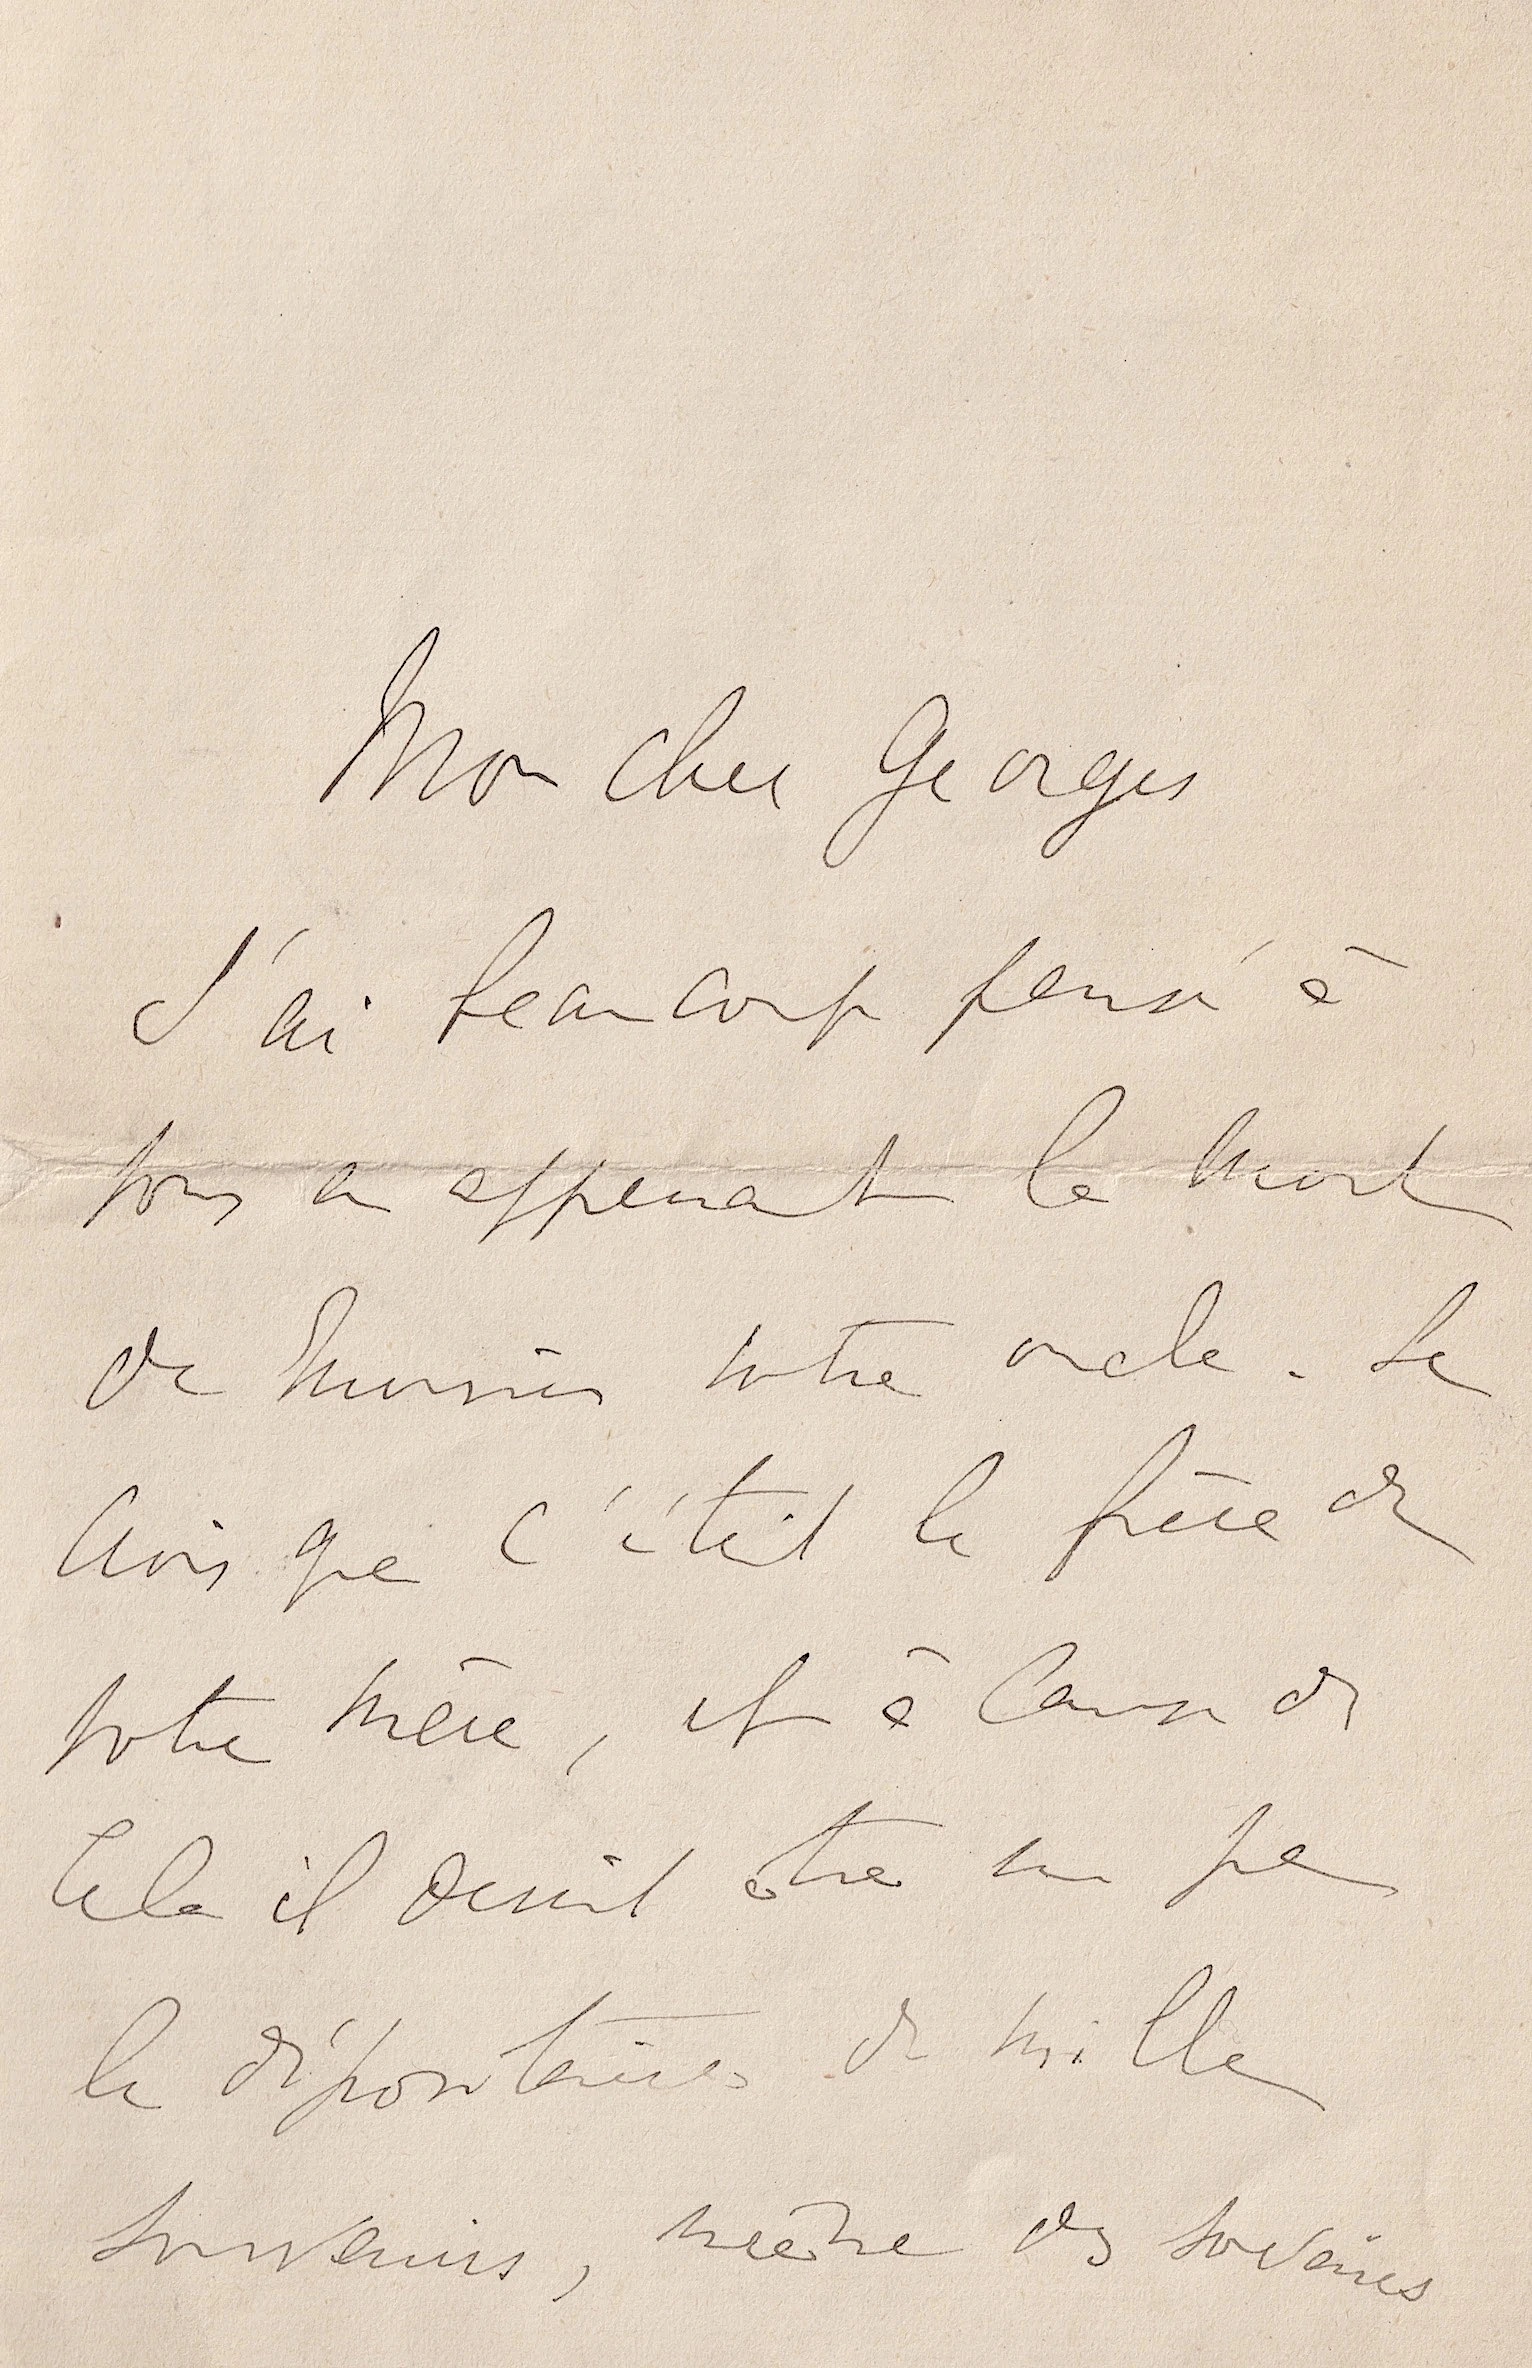 Mon cher Georges
J'ai beaucoup pensé à
vous en apprenant la mort
de Monsieur votre oncle. Je
crois que c'était le frère de
votre mère, et à cause de
cela il devait être un peu
le dépositaire de mille
souvenirs, même des